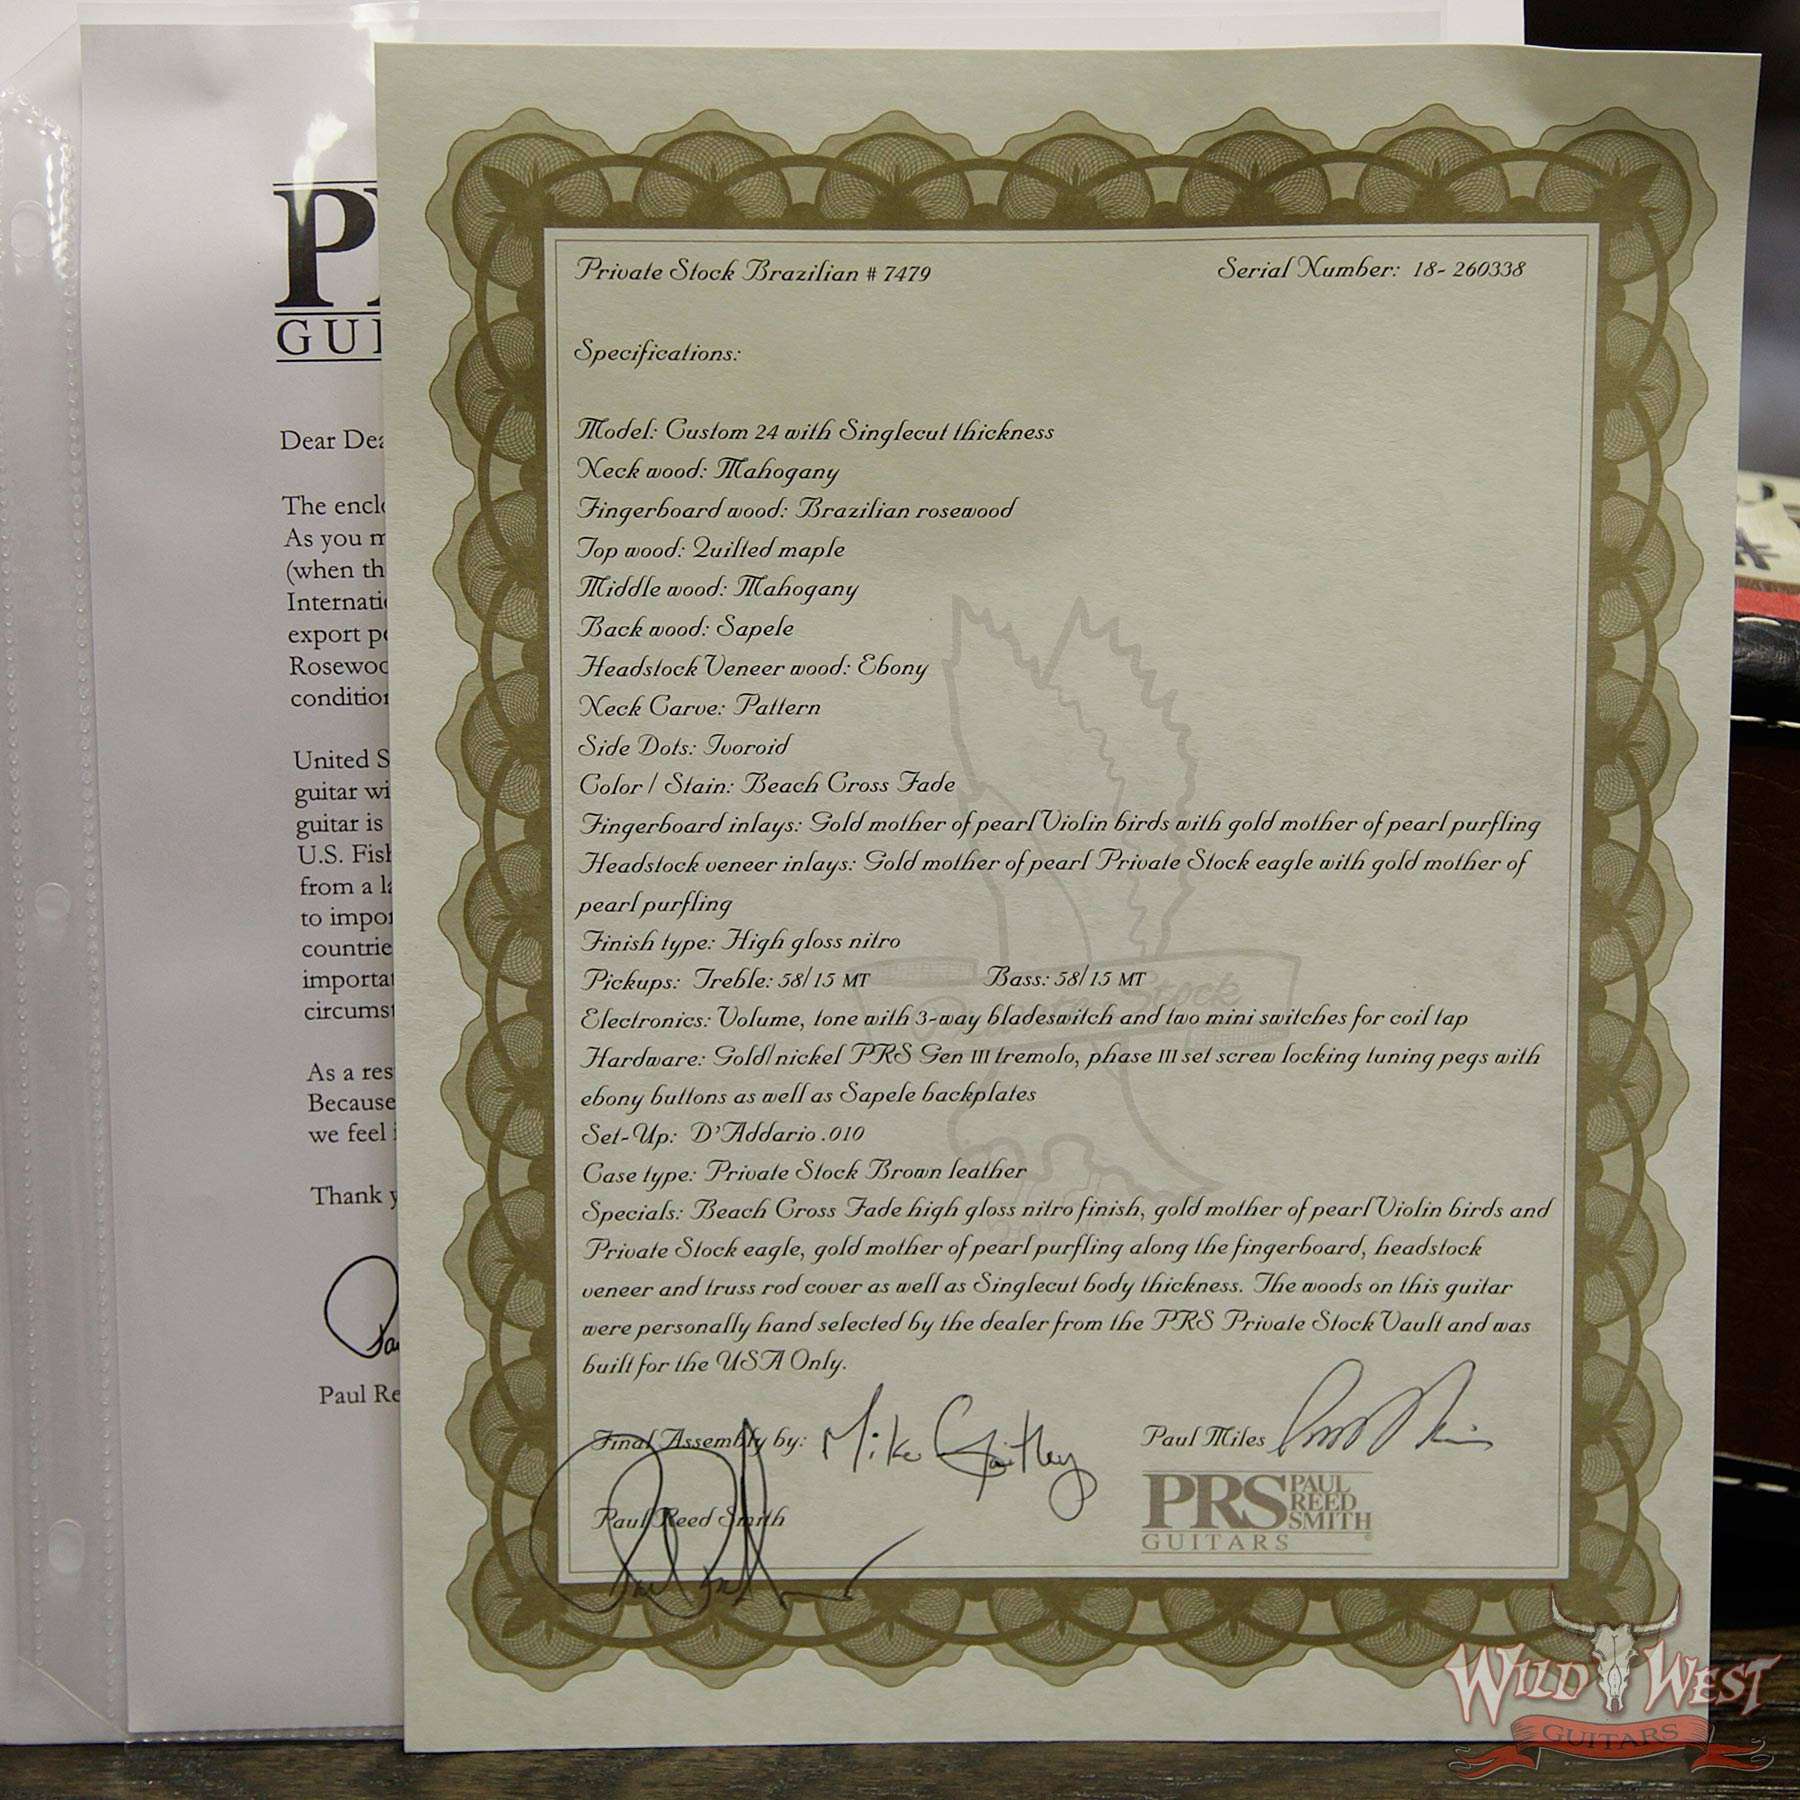 GUI
Dear
The
As you
(when
export
United
guitar
guitar is
U.S.
from a
to
As a
Because
we feel
Thank
Paul
Private Stock Brazilian # 7479
Serial Number: 18- 260338
Specifications:
Model: Custom 24 with Singlecut thickness
Neck wood: Mahogany
Fingerboard wood: Brazilian rosewood
Top wood: Quilted maple
Middle wood: Mahogany
Back wood: Sapele
Headstock Veneer wood: Ebony
Neck Carve: Pattern
Side Dots: Ivoroid
Color / Stain: Beach Cross Fade
Fingerboard inlays: Gold mother of pearl Violin birds with gold mother of pearl purfling
Headstock veneer inlays: Gold mother of pearl Private Stock eagle with gold mother of
pearl purfling
Finish type: High gloss nitro
Pickups: Treble: 58/15 MT Bass: 58/15 MT
Electronics: Volume, tone with 3-way bladeswitch and two mini switches for coil tap
Hardware: Gold/nickel PRS Gen III tremolo, phase III set screw locking tuning pegs with
ebony buttons as well as Sapele backplates
Set-Up: D'Addario .010
Case type: Private Stock Brown leather
Specials: Beach Cross Fade high gloss nitro finish, gold mother of pearl Violin birds and
Private Stock eagle, gold mother of pearl purfling along the fingerboard, headstock
veneer and truss rod cover as well as Singlecut body thickness. The woods on this guitar
were personally hand selected by the dealer from the PRS Private Stock Vault and was
built for the USA Only.
Private Stock
Final Assembly by: Mike
Paul Miles
Paul Reed Smith
PRS PAUL
REED
SMITH
GUITARS
WILD WEST
GUITARS